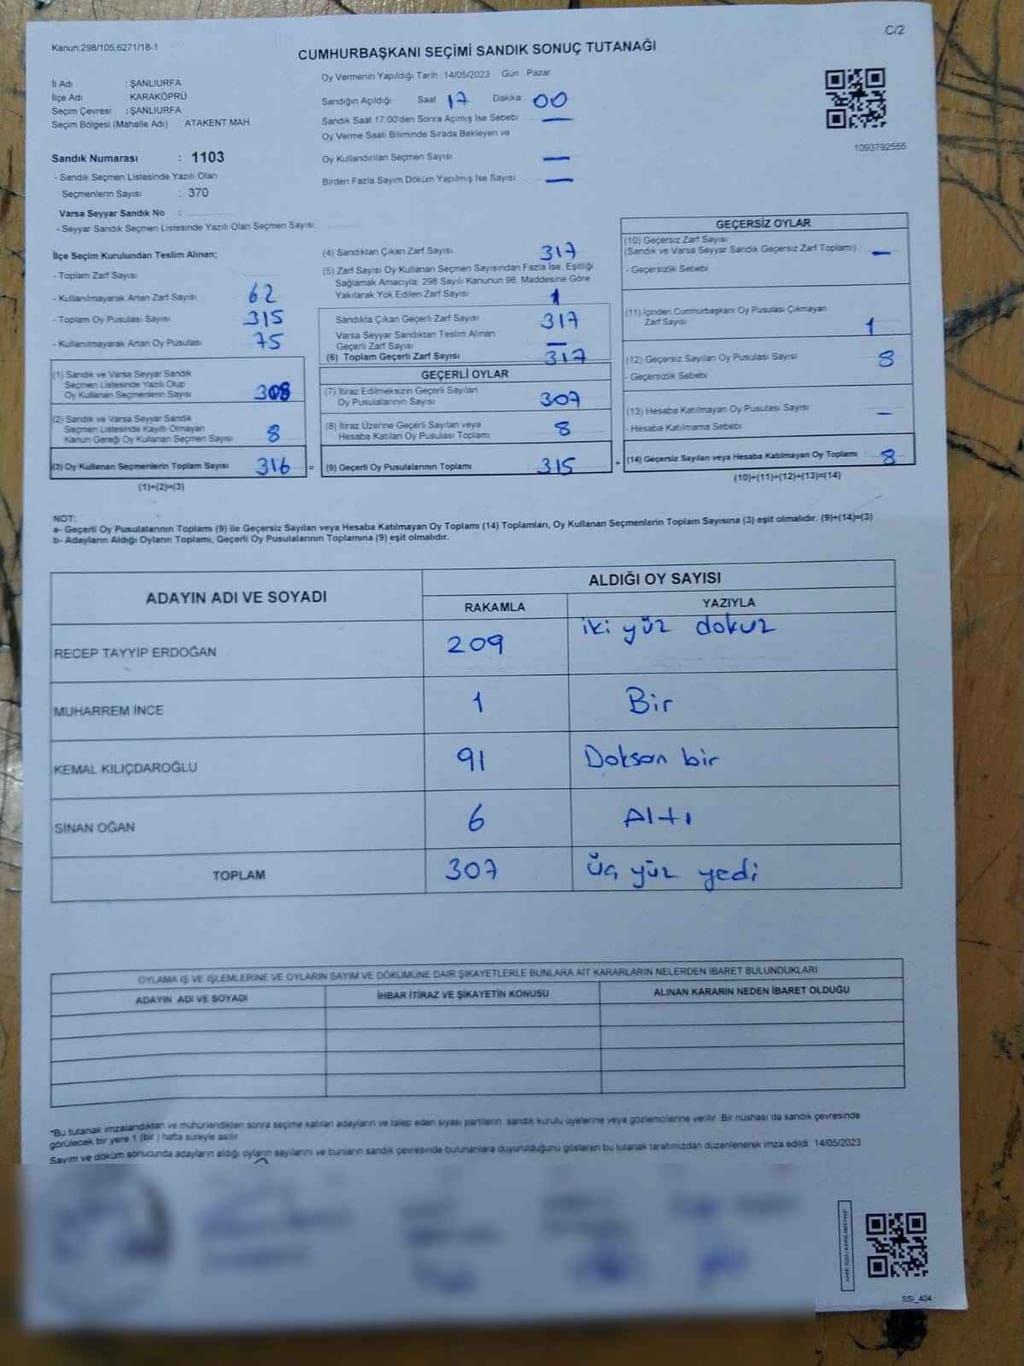 Kanun:298/105;6271/18-1
C/2
CUMHURBAŞKANI SEÇİMİ SANDIK SONUÇ TUTANAĞI
İl Adı : ŞANLIURFA
İlçe Adı : KARAKÖPRÜ
Seçim Çevresi : ŞANLIURFA
Seçim Bölgesi (Mahalle Adı) : ATAKENT MAH.
Sandık Numarası : 1103
- Sandık Seçmen Listesinde Yazılı Olan
Seçmenlerin Sayısı : 370
Varsa Seyyar Sandık No :
- Seyyar Sandık Seçmen Listesinde Yazılı Olan Seçmen Sayısı:
Oy Vermenin Yapıldığı Tarih :14/05/2023 Gün Pazar
Sandığın Açıldığı Saat 17 Dakika 00
Sandık Saat 17.00'den Sonra Açımış İse Sebebi —
Oy Verme Saati Bitiminde Sırada Bekleyen ve
Oy Kullandırılan Seçmen Sayısı —
Birden Fazla Sayım Döküm Yapılmış İse Sayısı —
1093792555
İlçe Seçim Kurulundan Teslim Alınan;
- Toplam Zarf Sayısı
- Kullanılmayarak Artan Zarf Sayısı 62
- Toplam Oy Pusulası Sayısı 315
- Kullanılmayarak Artan Oy Pusulası 75
(1) Sandık ve Varsa Seyyar Sandık
Seçmen Listesinde Yazılı Olup
Oy Kullanan Seçmenlerin Sayısı 308
(2) Sandık ve Varsa Seyyar Sandık
Seçmen Listesinde Kayıtlı Olmayan
Kanun Gereği Oy Kullanan Seçmen Sayısı 8
(3) Oy Kullanan Seçmenlerin Toplam Sayısı 316 =
(1)+(2)=(3)
(4) Sandıktan Çıkan Zarf Sayısı 317
(5) Zarf Sayısı Oy Kullanan Seçmen Sayısından Fazla İse, Eşitliği
Sağlamak Amacıyla; 298 Sayılı Kanunun 98. Maddesine Göre
Yakılarak Yok Edilen Zarf Sayısı 1
Sandıkta Çıkan Geçerli Zarf Sayısı 317
Varsa Seyyar Sandıktan Teslim Alınan
Geçerli Zarf Sayısı —
(6) Toplam Geçerli Zarf Sayısı 317
GEÇERLİ OYLAR
(7) İtiraz Edilmeksizin Geçerli Sayılan
Oy Pusulalarının Sayısı 307
(8) İtiraz Üzerine Geçerli Sayılan veya
Hesaba Katılan Oy Pusulası Toplamı 8
(9) Geçerli Oy Pusulalarının Toplamı 315 +
GEÇERSİZ OYLAR
(10) Geçersiz Zarf Sayısı
(Sandık ve Varsa Seyyar Sandık Geçersiz Zarf Toplamı) —
- Geçersizlik Sebebi
(11) İçinden Cumhurbaşkanı Oy Pusulası Çıkmayan
Zarf Sayısı 1
(12) Geçersiz Sayılan Oy Pusulası Sayısı 8
- Geçersizlik Sebebi
(13) Hesaba Katılmayan Oy Pusulası Sayısı —
- Hesaba Katılmama Sebebi
(14) Geçersiz Sayılan veya Hesaba Katılmayan Oy Toplamı 8
(10)+(11)+(12)+(13)=(14)
NOT:
a- Geçerli Oy Pusulalarının Toplamı (9) ile Geçersiz Sayılan veya Hesaba Katılmayan Oy Toplamı (14) Toplamları, Oy Kullanan Seçmenlerin Toplam Sayısına (3) eşit olmalıdır. (9)+(14)=(3)
b- Adayların Aldığı Oyların Toplamı, Geçerli Oy Pusulalarının Toplamına (9) eşit olmalıdır.
ADAYIN ADI VE SOYADI
ALDIĞI OY SAYISI
RAKAMLA YAZIYLA
RECEP TAYYİP ERDOĞAN 209 iki yüz dokuz
MUHARREM İNCE 1 Bir
KEMAL KILIÇDAROĞLU 91 Doksan bir
SİNAN OĞAN 6 Altı
TOPLAM 307 üç yüz yedi
OYLAMA İŞ VE İŞLEMLERİNE VE OYLARIN SAYIM VE DÖKÜMÜNE DAİR ŞİKAYETLERLE BUNLARA AİT KARARLARIN NELERDEN İBARET BULUNDUKLARI
ADAYIN ADI VE SOYADI İHBAR İTİRAZ VE ŞİKAYETİN KONUSU ALINAN KARARIN NEDEN İBARET OLDUĞU
*Bu tutanak imzalandıktan ve mühürlendikten sonra seçime katılan adayların ve talep eden siyasi partilerin sandık kurulu üyelerine veya gözlemcilerine verilir. Bir nüshası da sandık çevresinde
görülecek bir yere 1 (bir) hafta süreyle asılır
Sayım ve döküm sonucunda adayların aldığı oyların sayılarını ve bunların sandık çevresinde bulunanlara duyurulduğunu gösteren bu tutanak tarafımızdan düzenlenerek imza edildi. 14/05/2023
SSI_404